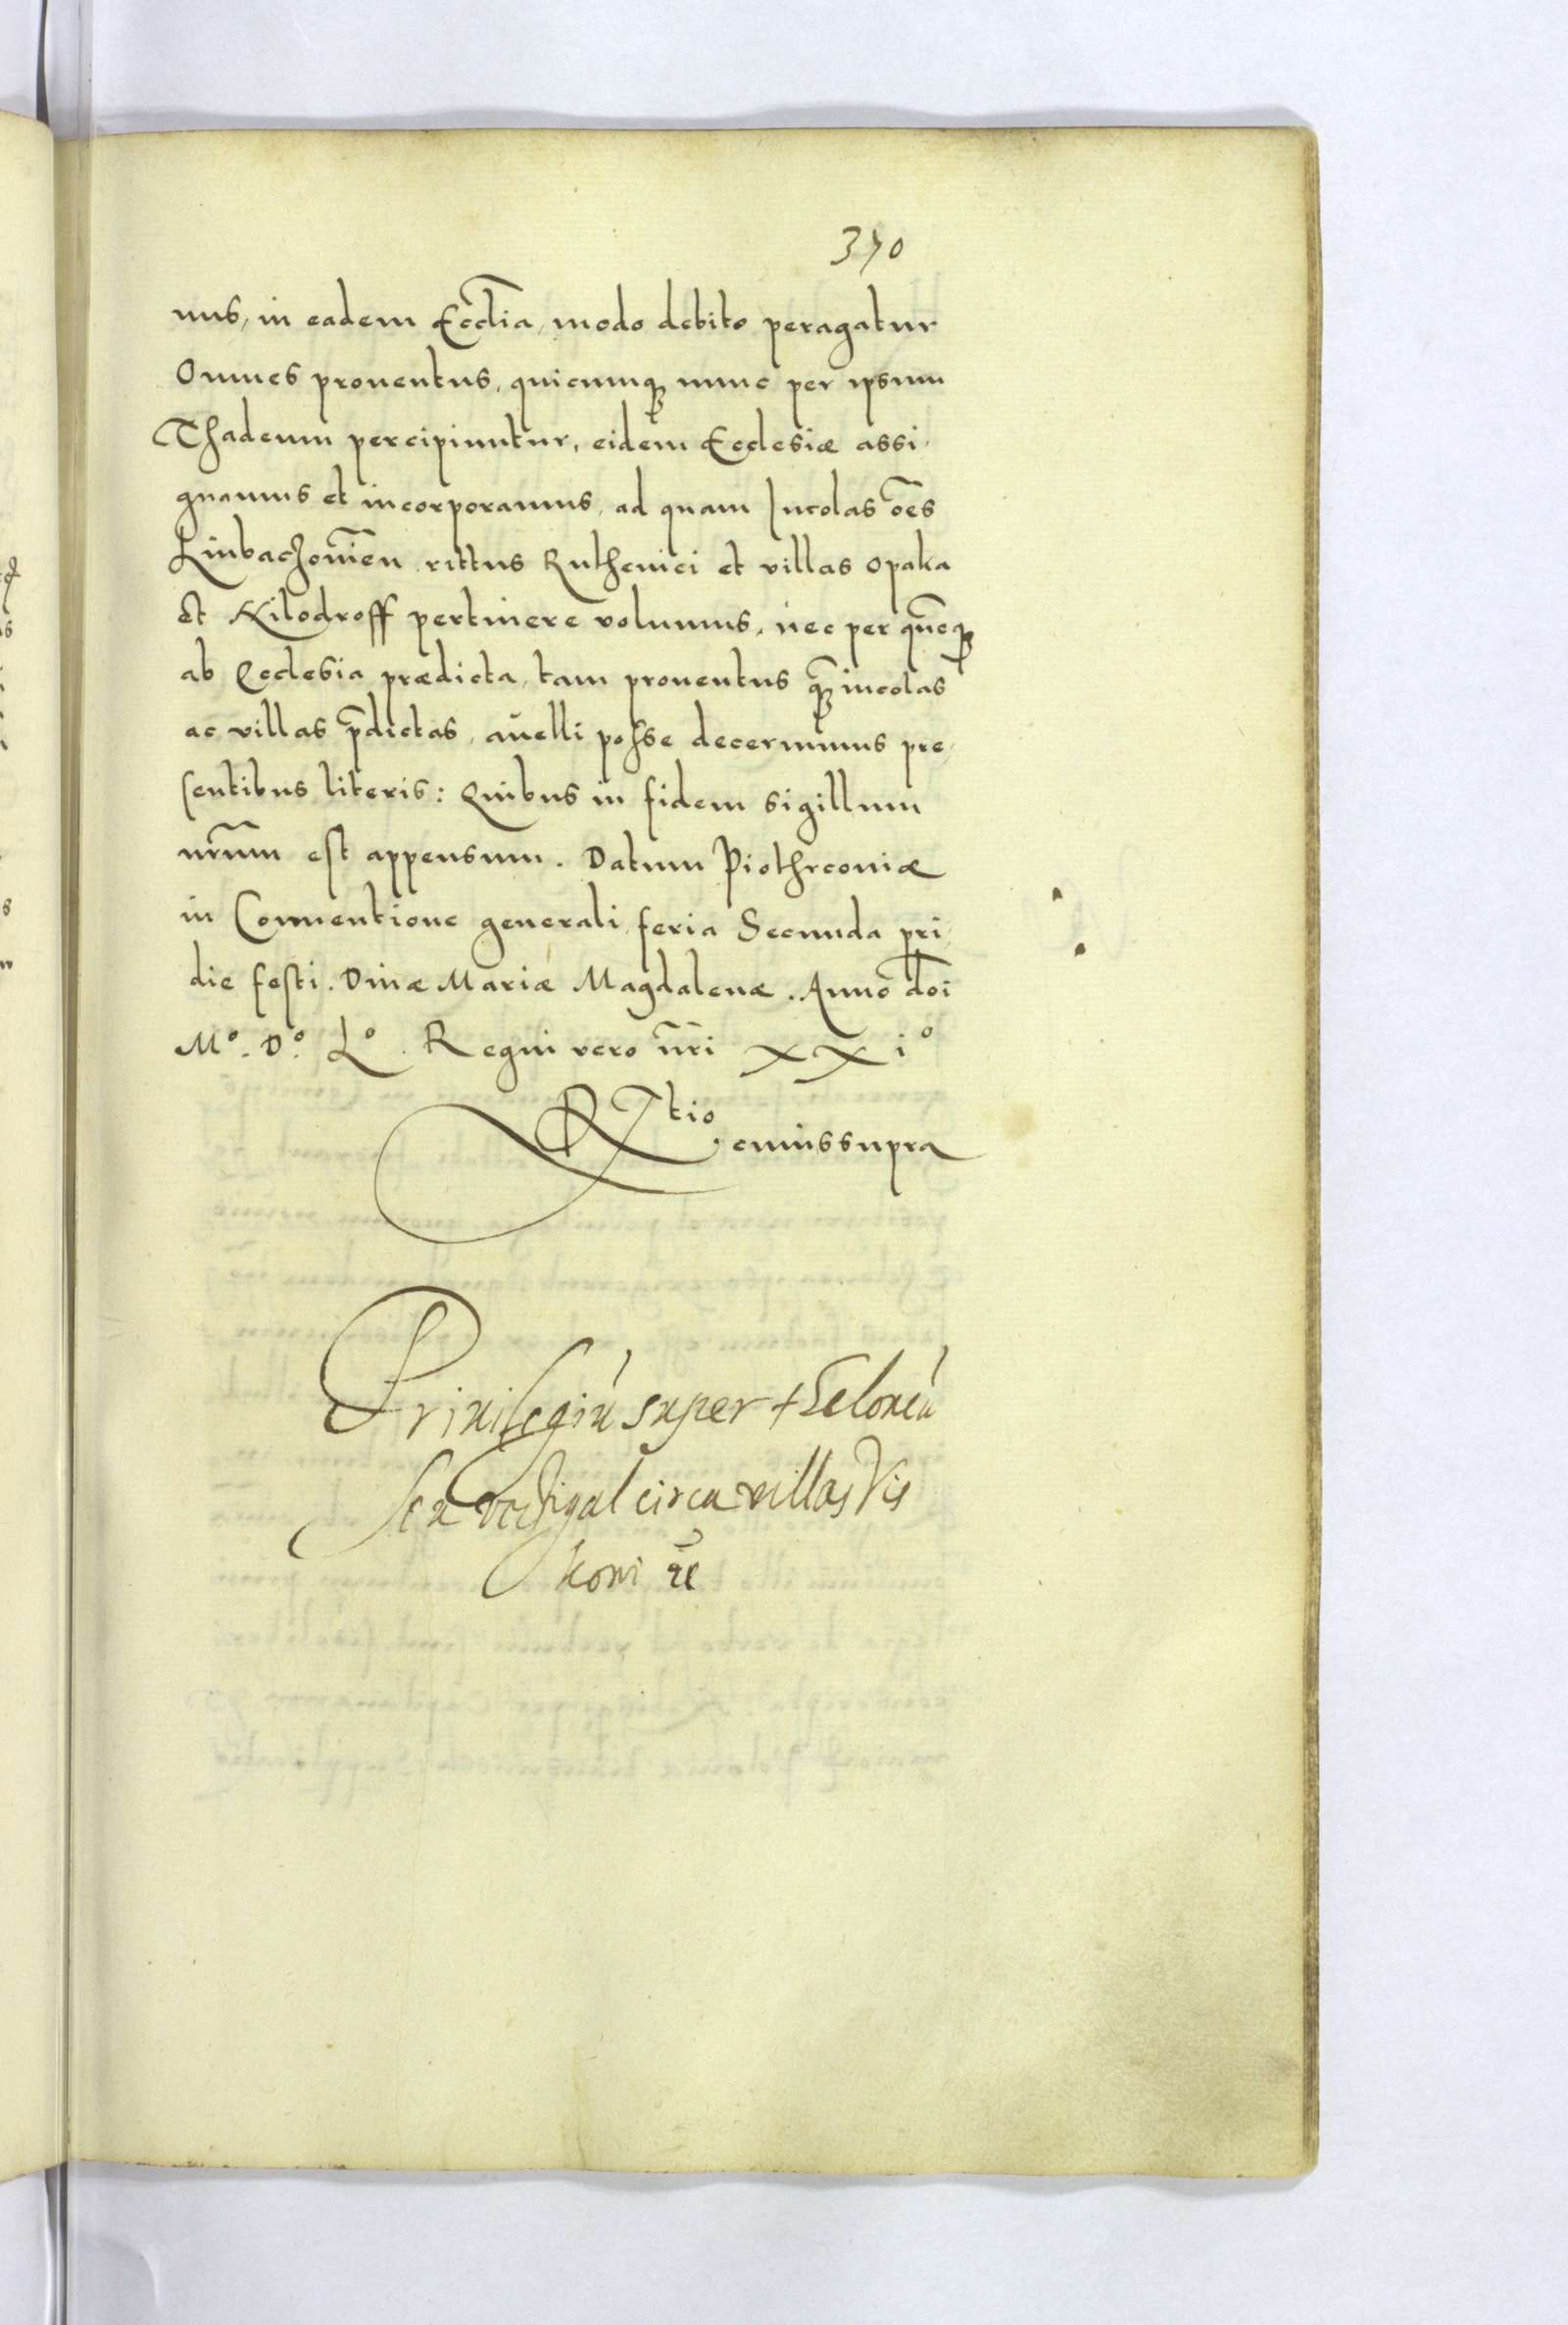 370
nus, in eadem Eccľia, modo debito peragatur
Omnes prouentus, quicumqꝫ nunc per ipsum
Thadeum percipiuntur, eidem Ecclesiæ assi-
gnamus et incorporamus, ad quam Incolas oēs
Liubaczouieñ rittus Ruthenici et villas Opaka
et Nilodroff pertinere volumus, nec per quēcqꝫ
ab Ecclesia prædicta, tam prouentus qꝫ incolas
ac villas p̄dictas, auelli posse decernimus pre-
sentibus literis: Quibus in fidem sigillum
nr̃um est appensum. Datum Piothrconiæ
in Conuentione generali feria Secunda pri-
die festi Diuæ Mariæ Magdalenæ. Anno dňi
Mº. Dº. Lº. Regni vero nr̃i xxiº
Rtio cuius supra
Priuilegiū super Teloneū
seu Vectigal circa villas Vis
koni